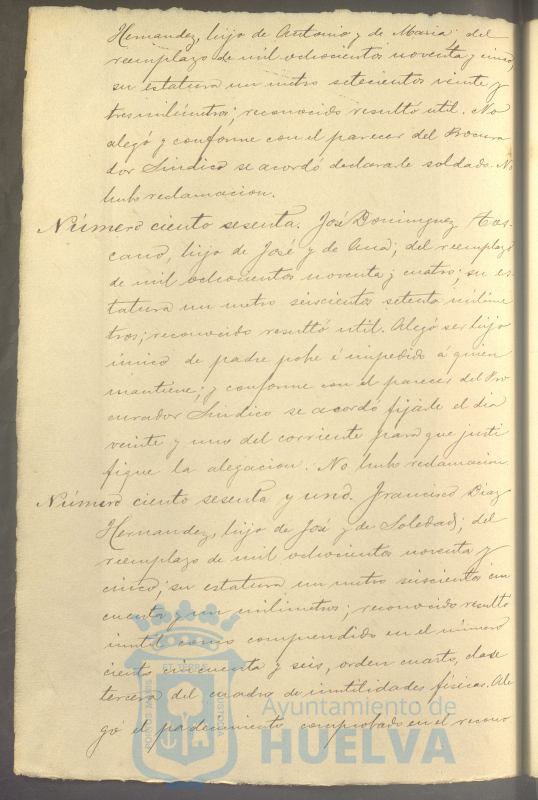 Hernandez, hijo de Antonio y de Maria; del
reemplazo de mil ochocientos noventa y cinco,
su estatura un metro setecientos veinte y
tres milimetros; reconocido resultó util. No
alegó y conforme con el parecer del Procura
dor Sindico se acordó declararle soldado. No
hubo reclamacion.
Número ciento sesenta. José Dominguez Tos-
cano, hijo de José y de Ana; del reemplazo
de mil ochocientos noventa y cuatro; su es-
tatura un metro seiscientos setenta milime
tros; reconocido resultó util. Alegó ser hijo
único de padre pobre é impedido á quien
mantiene; y conforme con el parecer del Pro
curador Sindico se acordó fijarle el dia
veinte y uno del corriente para que justi
fique la alegacion. No hubo reclamacion.
Número ciento sesenta y uno. Francisco Diaz
Hernandez, hijo de José y de Soledad; del
reemplazo de mil ochocientos noventa y
cinco; su estatura un metro seiscientos cin
cuenta y un milimetros; reconocido resultó
inutil como comprendido en el número
ciento cincuenta y seis, orden cuarto, clase
tercera del cuadro de inutilidades físicas. Ale
gó el padecimiento comprobado en el recono
Ayuntamiento de
HUELVA